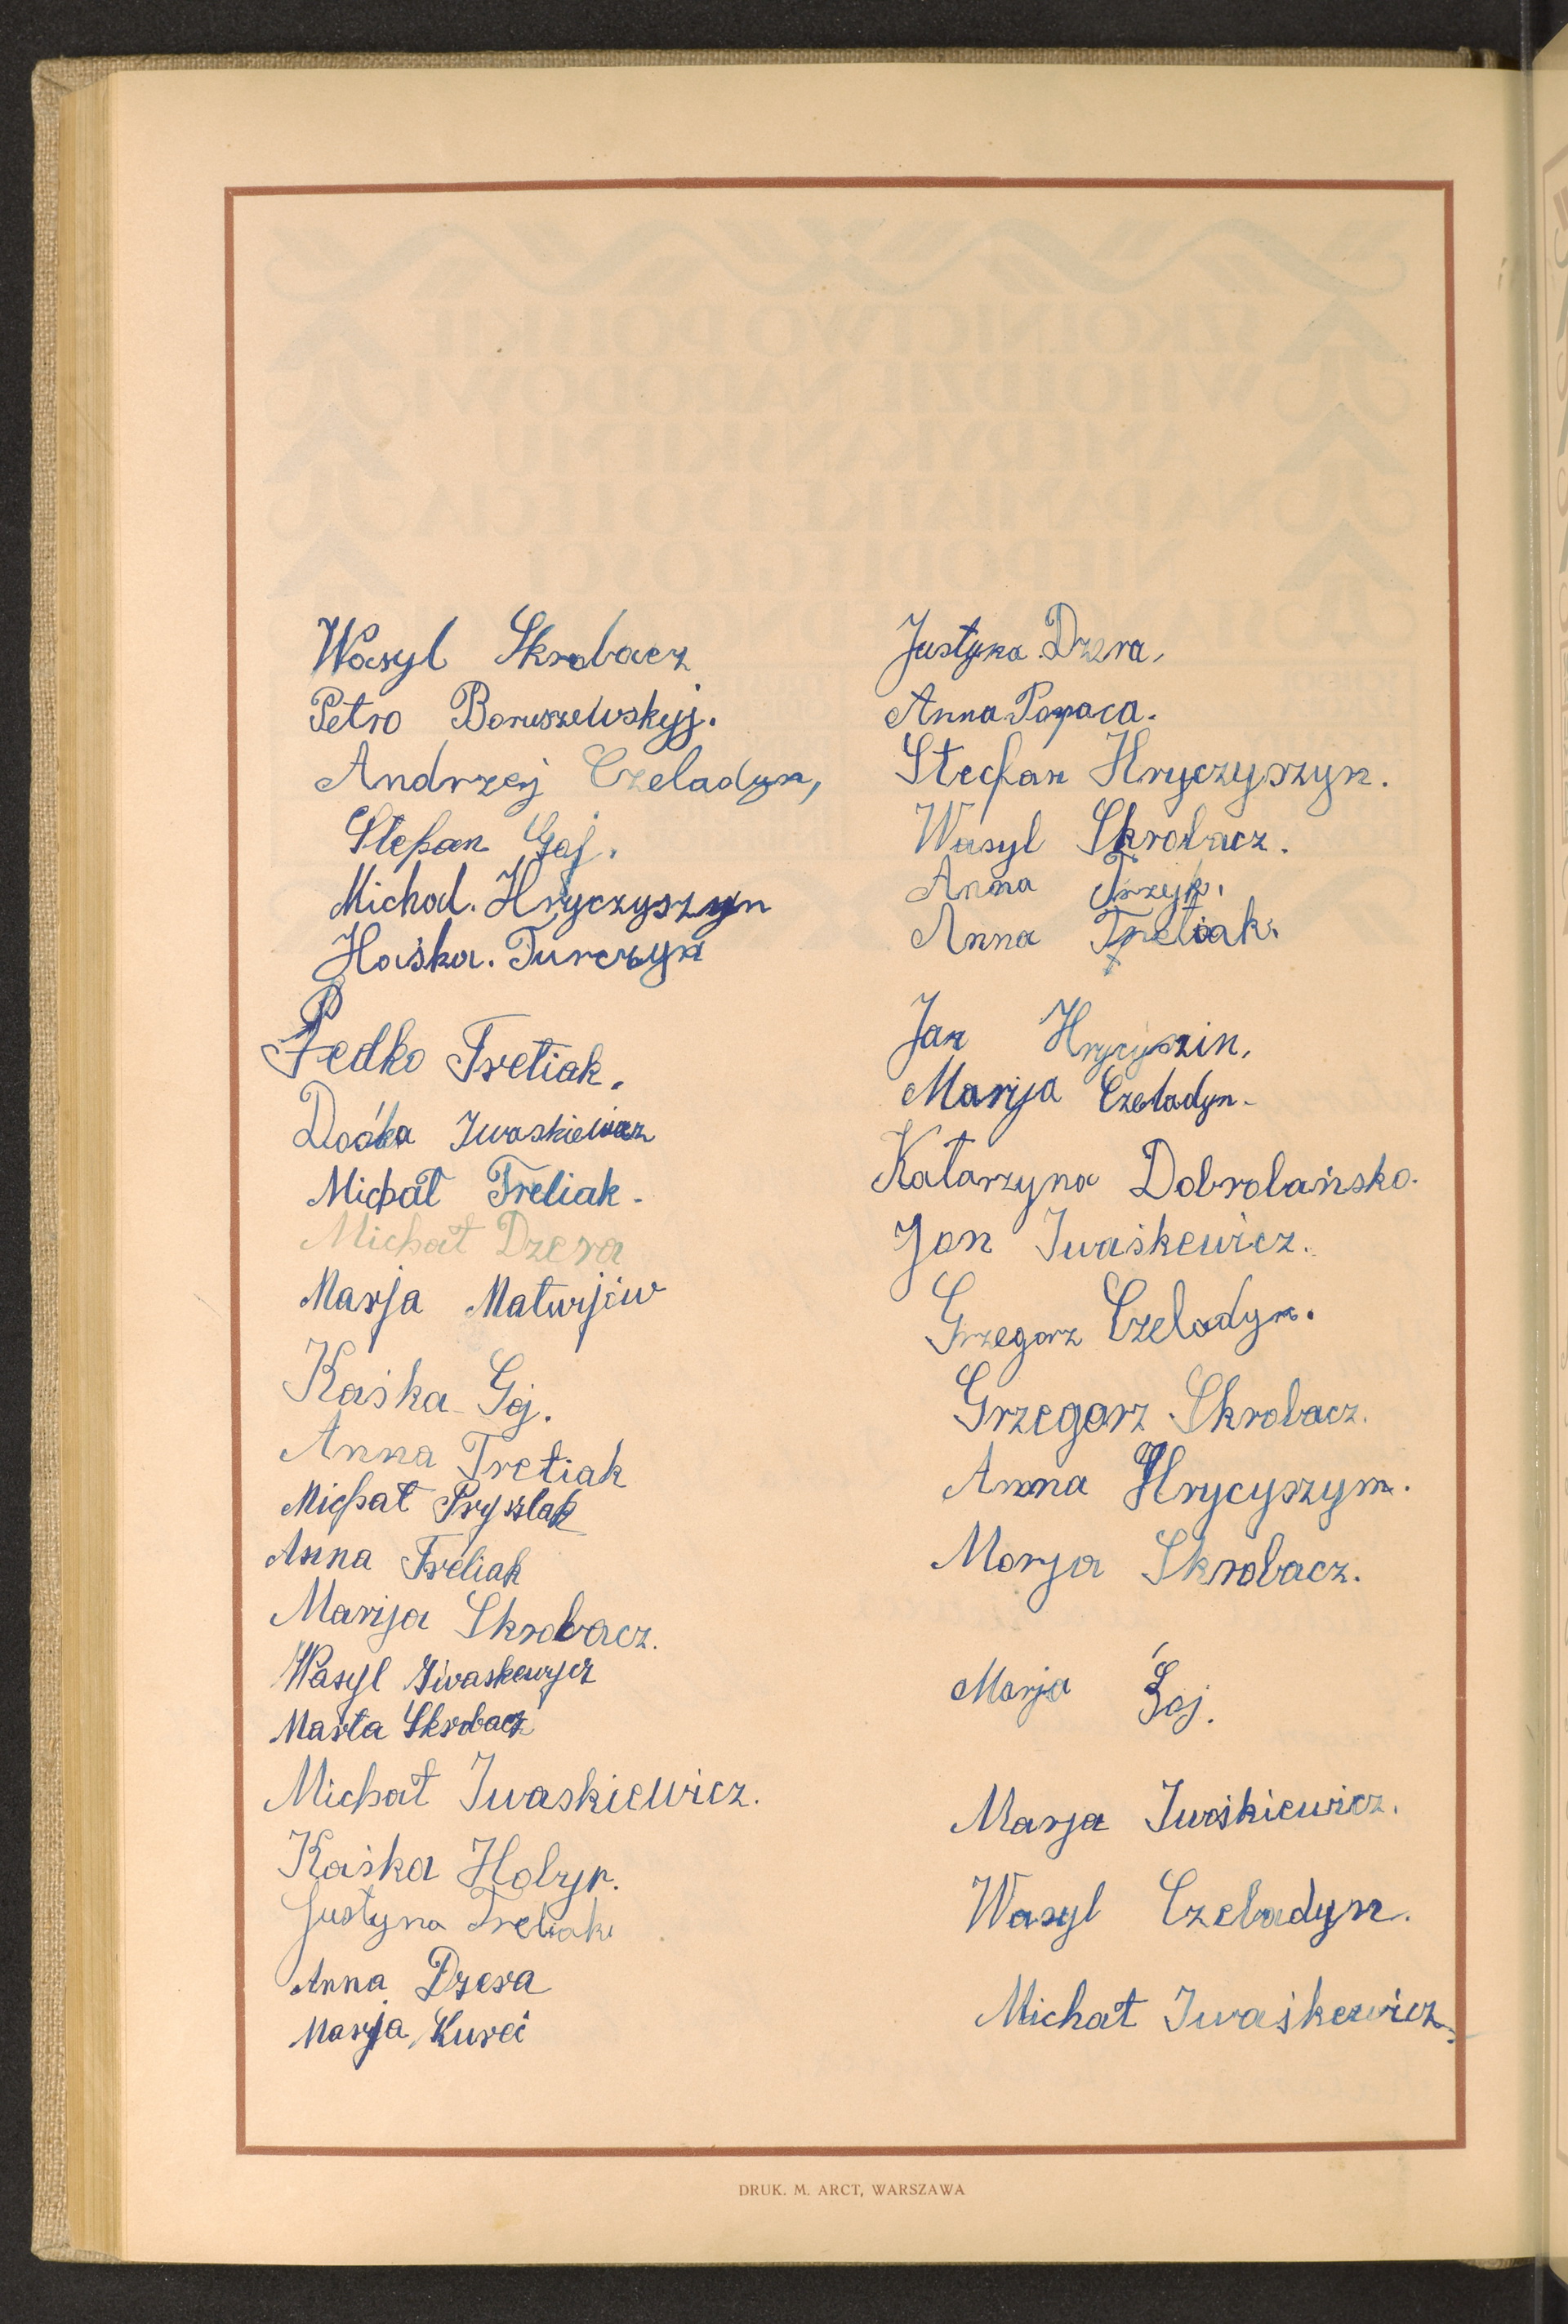 Wasyl Skrobacz
Petro Boruszewskyj.
Andrzej Czeladyn,
Stefan Gaj.
Michał. Hryczyszyn
Haśka. Turczyn
Fedko Tretiak.
Dośka Iwaskiewicz
Michał Tretiak.
Michał Dzera
Marja Matwijiw
Kaśka Gaj.
Anna Tretiak
Michał Pryszlak
Anna Tretiak
Marija Skrobacz.
Wasyl Iwaskewycz
Marta Skrobacz
Michał Iwaskiewicz.
Kaśka Hobyr.
Justyna Tretiak
Anna Dzera
Marja Kureć
Justyna Dzera,
Anna
Stefan Hryczyszyn.
Wasyl Skrobacz.
Anna
Anna Tretiak.
Jan Hrycyszin,
Marija Czeladyn.
Katarzyna Dobrolańska.
Jan Iwaśkewicz.
Grzegorz Czeladyn.
Grzegorz Skrobacz.
Anna Hrycyszym.
Marja Skrobacz.
Marja Gaj.
Marja Iwaśkiewicz.
Wasyl Czeladyn.
Michał Iwaśkewicz.
DRUK. M. ARCT, WARSZAWA